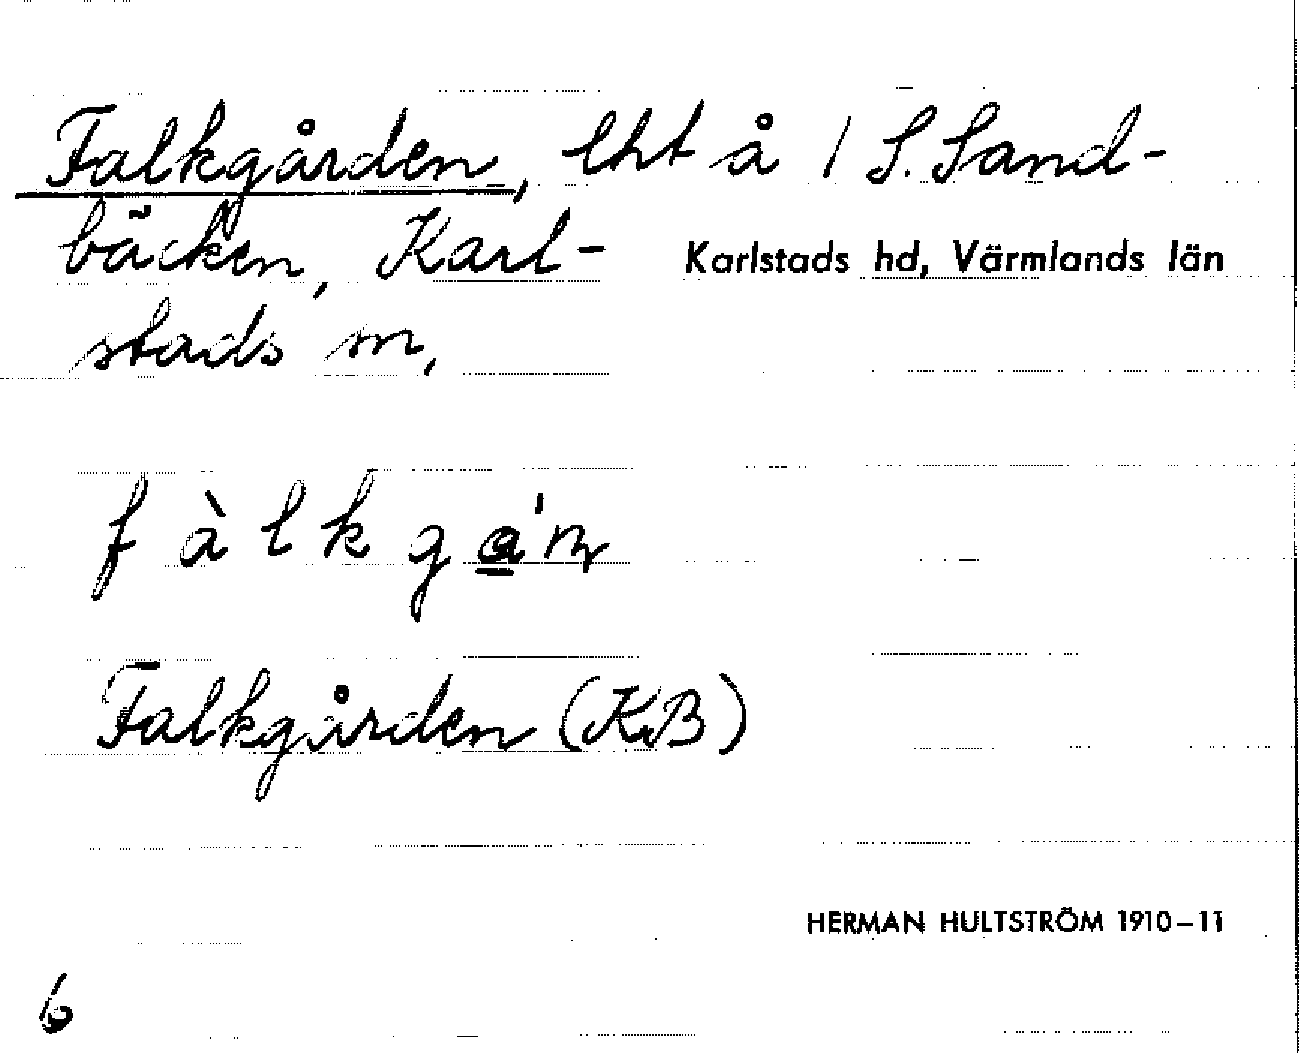 Falkgården, lht å / S. Sand-
bäcken, Karl-
Karlstads hd, Värmlands län
stads sn,
Falkgården (KB)
HERMAN HULTSTRÖM 1910–11
6